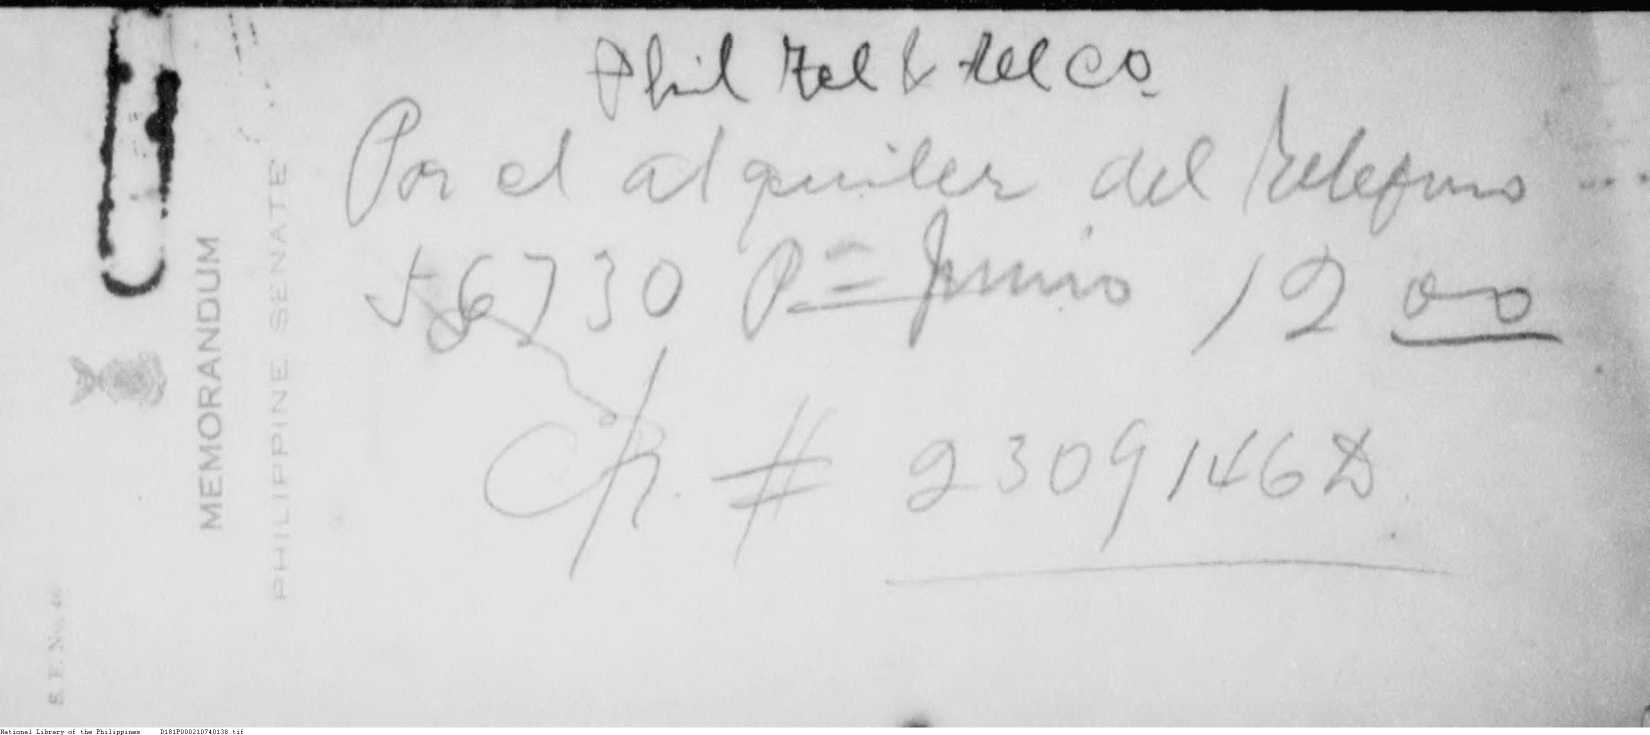 Phil Tel & Tel Co.
Por el alquiler del telefono ...
56730 Pa= Junio 12 00
CK. # 2309146D
MEMORANDUM
PHILIPPINE SENATE
S. F. No. 46
National Library of the Philippines D181P000210740138.tif